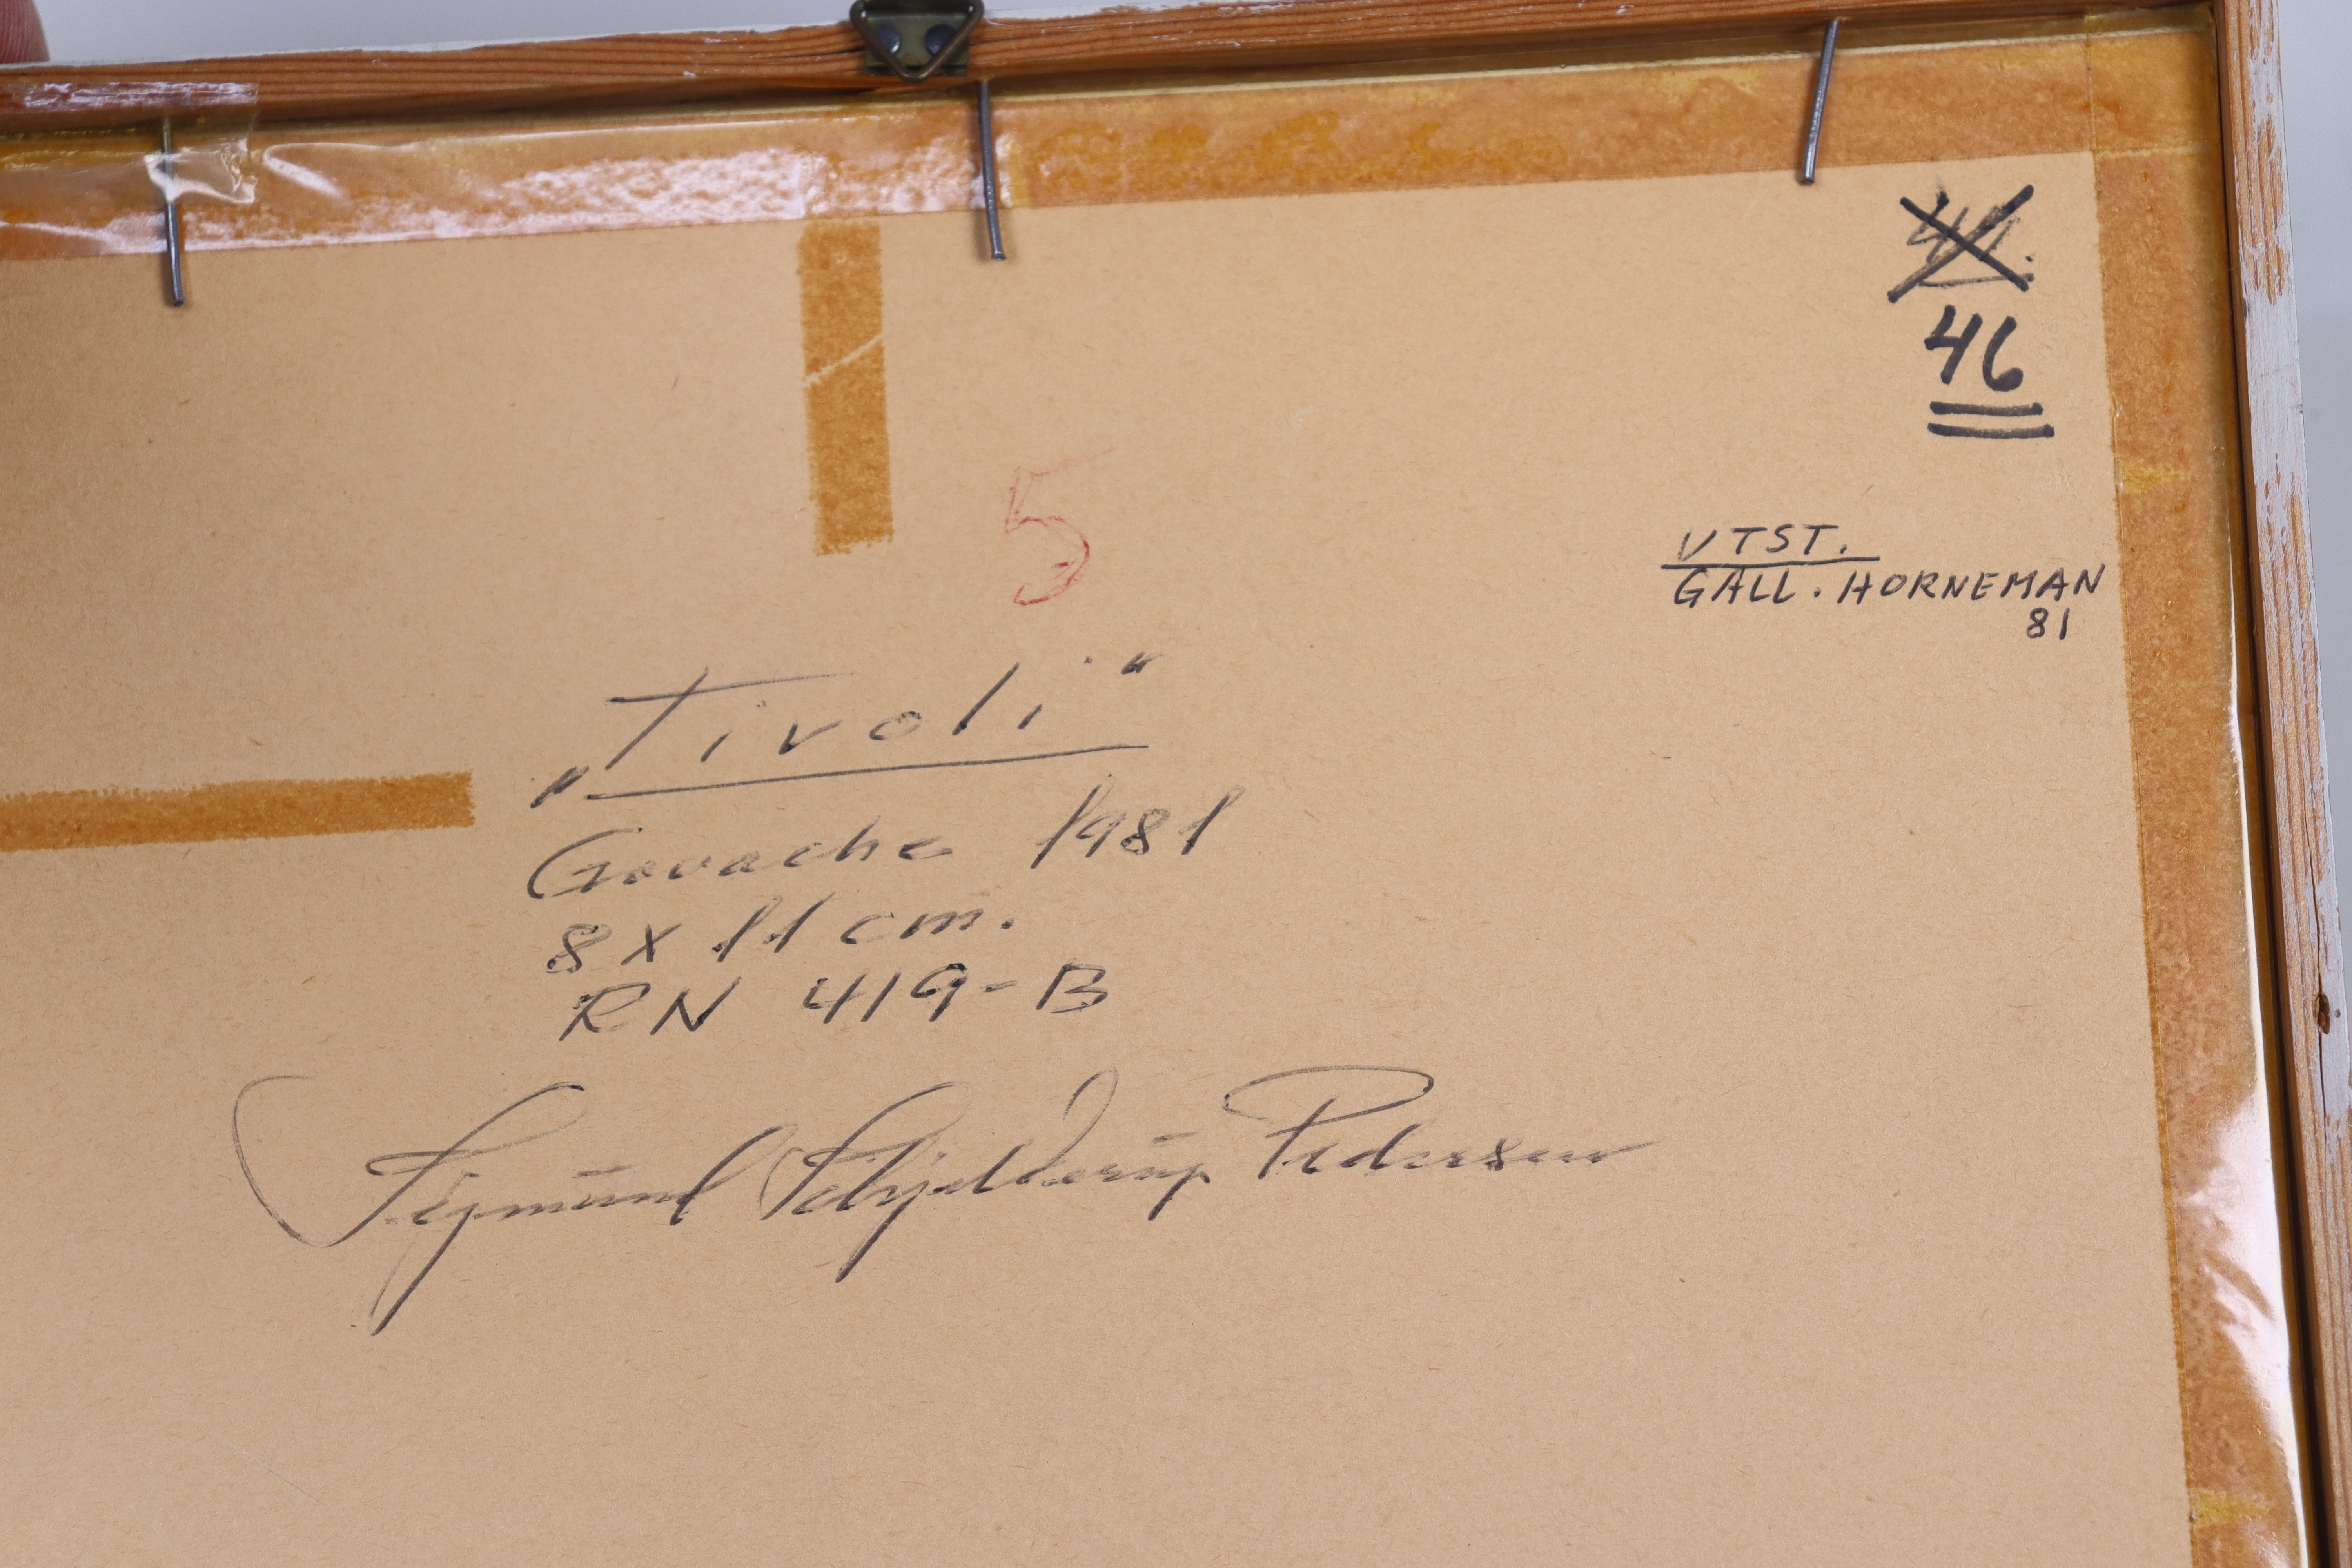 46
VTST.
GALL. HORNEMAN
81
5
„Tivoli“
Gouache 1981
8 x 11 cm.
RN 419-B
Sigmund Schjelderup Pedersen